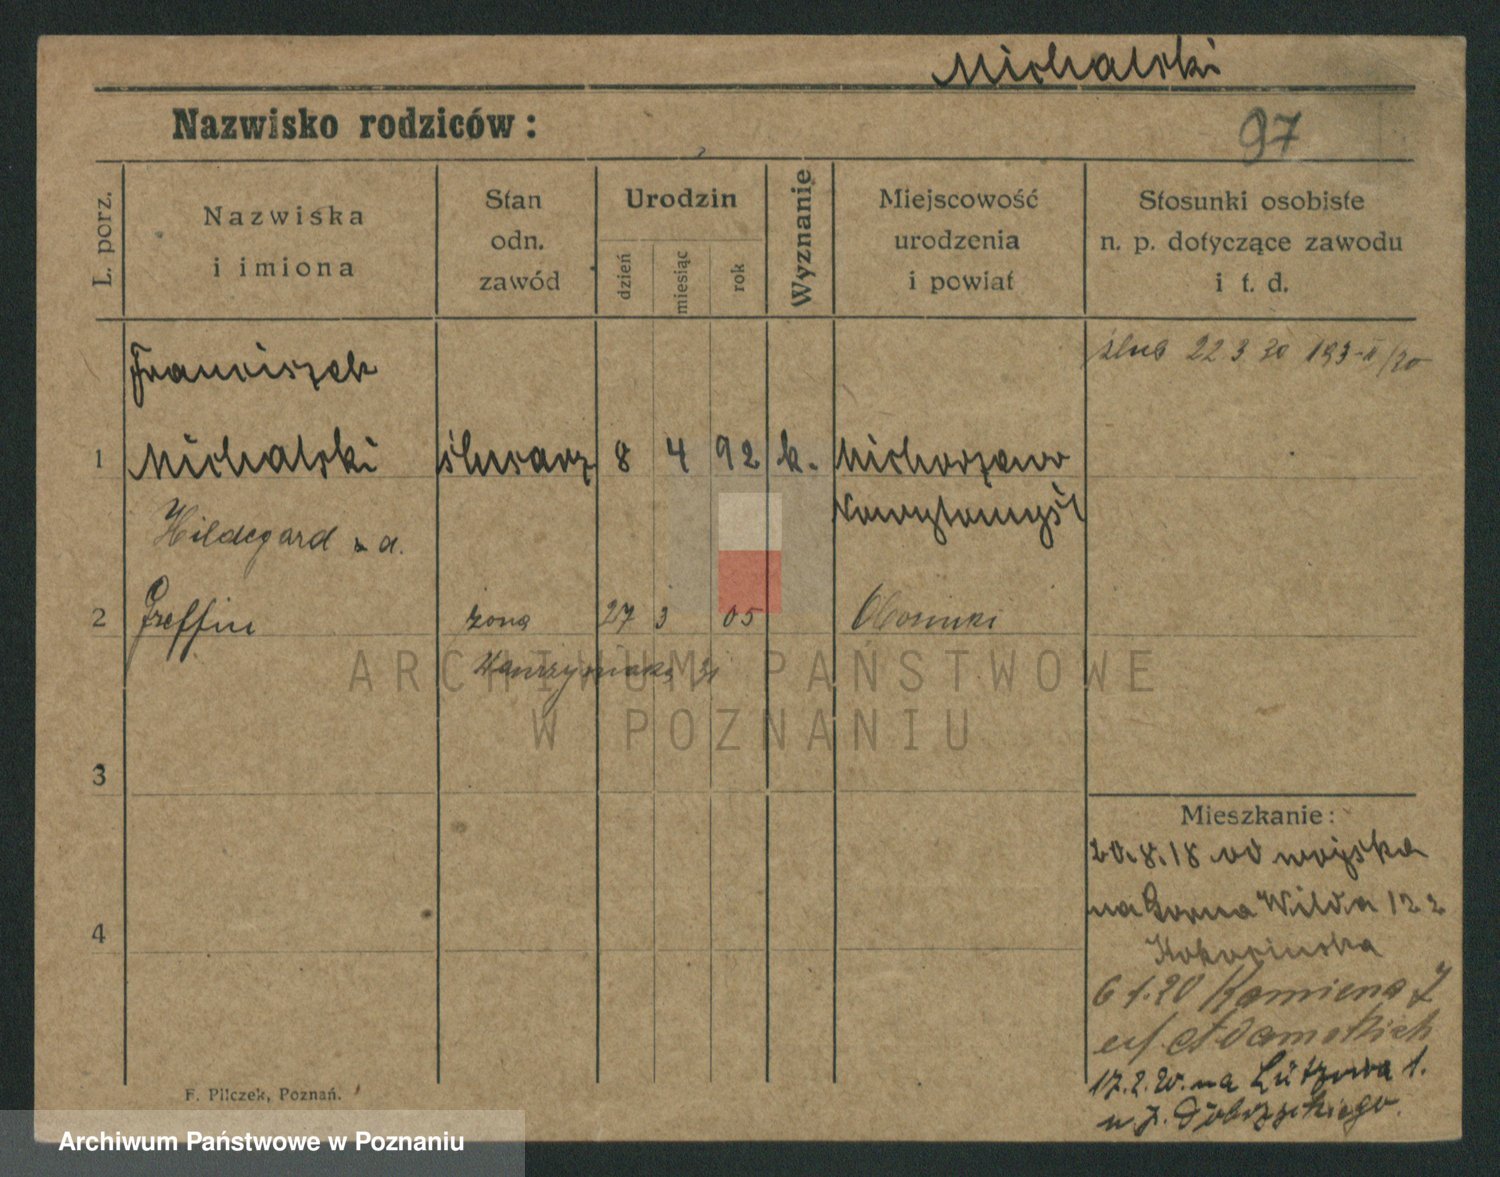 Michalski
Nazwisko rodziców:
97
L. porz.
Nazwiska
i imiona
Stan
odn.
zawód
Urodzin
dzień
miesiąc
rok
Wyznanie
Miejscowość
urodzenia
i powiat
Stosunki osobiste
n. p. dotyczące zawodu
i t. d.
ślub 22 3 20 193-II/20
Franciszek
1 Michalski ślusarz 8 4 92 k. Michorzewo
Nowytomyśl
Hildegard
2 Greffin żona 27 3 05 Oborniki
Wawrzyniaka 31
ARCHIWUM PAŃSTWOWE
W POZNANIU
3
4
Mieszkanie:
20.8.18 od wojska
na Gorna Wilda 122
6 1.20 Kamiena 7
17.2.20. na Lützowa 1.
F. Pilczek, Poznań.
Archiwum Państwowe w Poznaniu